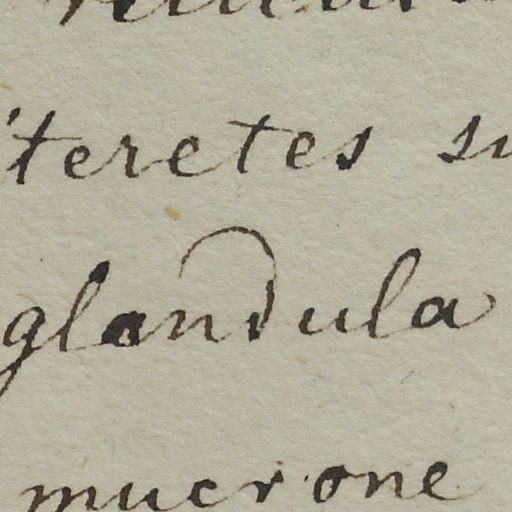 teretes
glandula
mucrone